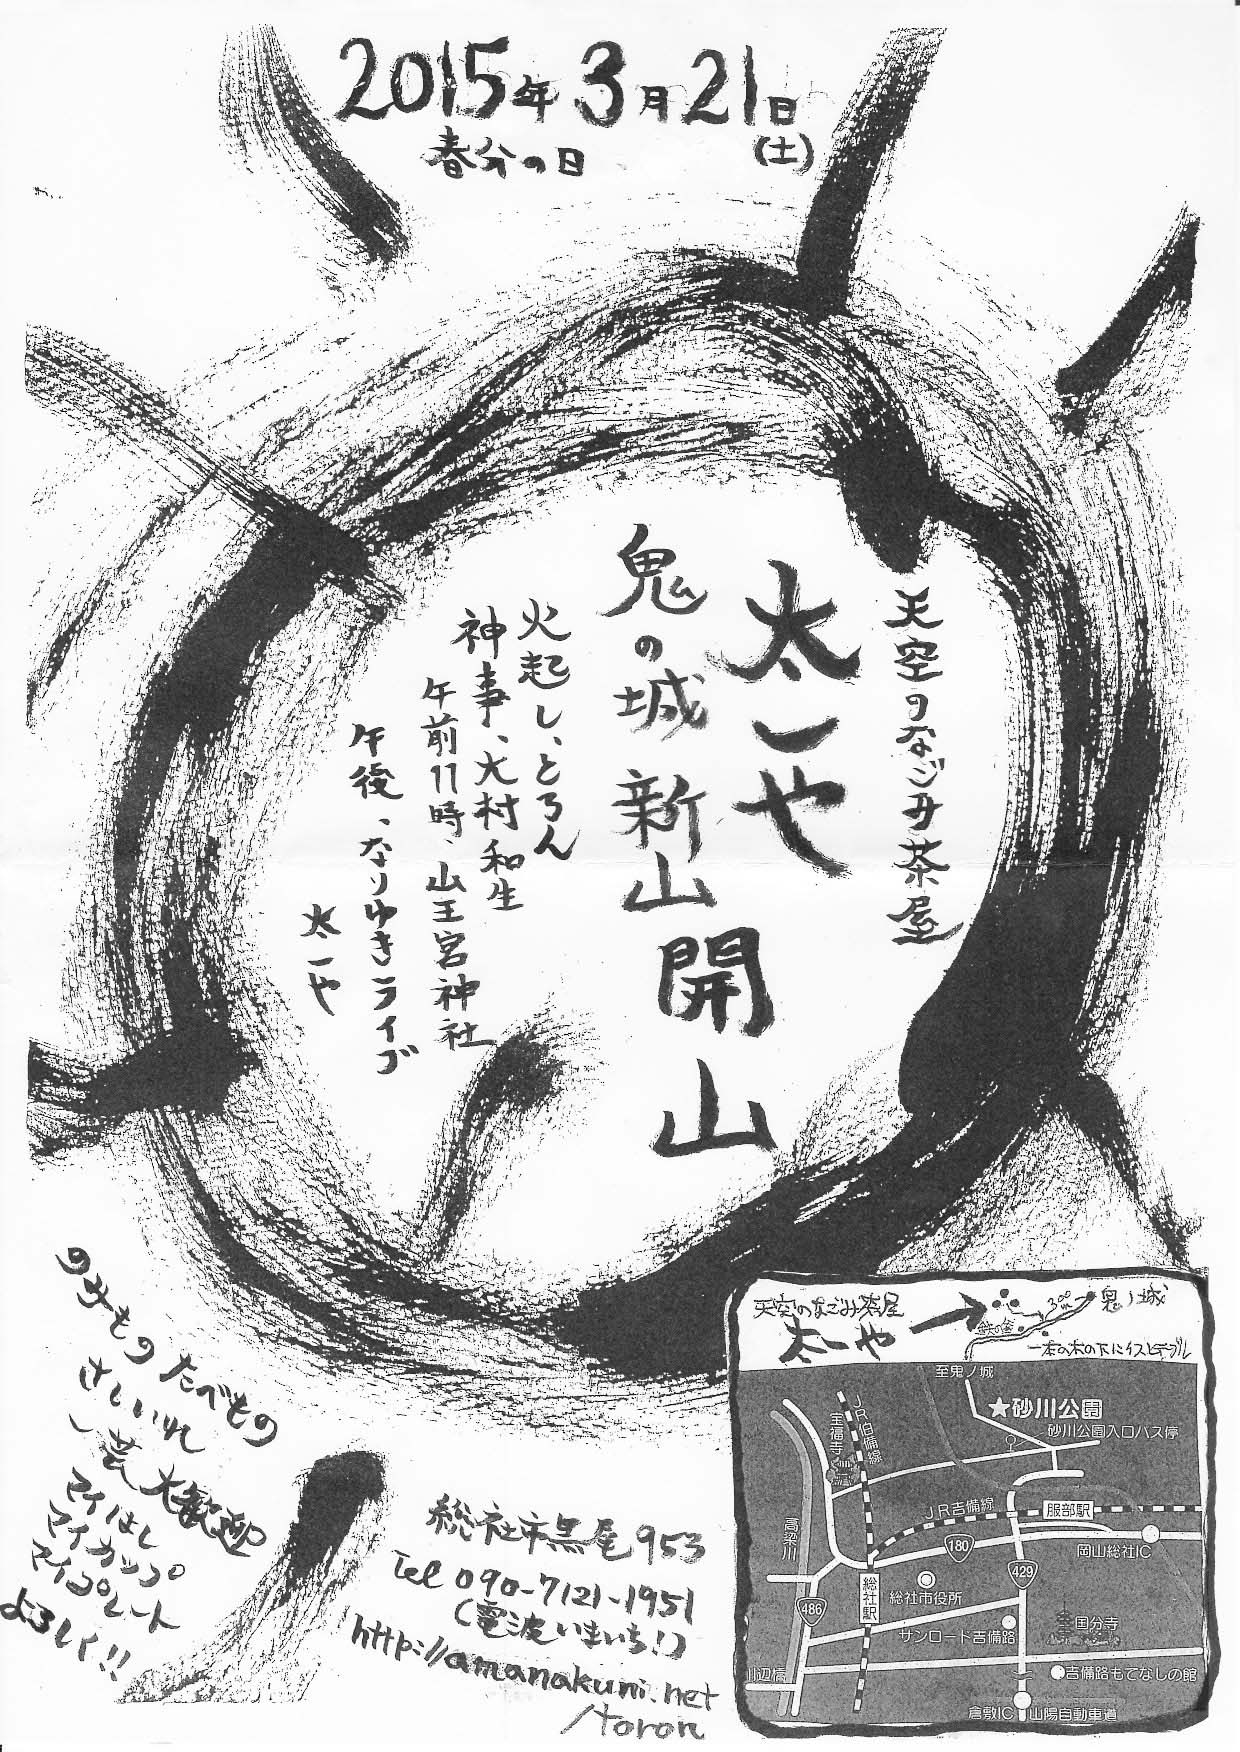 2015年3月21日
(土)
春分の日
天空のなごみ茶屋
太一や
鬼の城 新山 開山
火起し、とろん
神事、大村和生
午前11時、山王宮神社
午後、なりゆきライブ
太一や
のみもの たべもの
さしいれ
一芸 大歓迎
マイはし
マイカップ
マイプレート
よろしく!!
総社市黒尾953
Tel 090-7121-1951
(電波いまいち!)
http://amanakuni.net
/toron
天空のなごみ茶屋
太一や
300m
鬼ノ城
一本の木の下にイスとテーブル
至鬼ノ城
★砂川公園
砂川公園入口バス停
宝福寺
JR伯備線
JR吉備線
服部駅
高梁川
180
岡山総社IC
429
総社駅
総社市役所
486
サンロード吉備路
国分寺
川辺橋
吉備路もてなしの館
倉敷IC
山陽自動車道